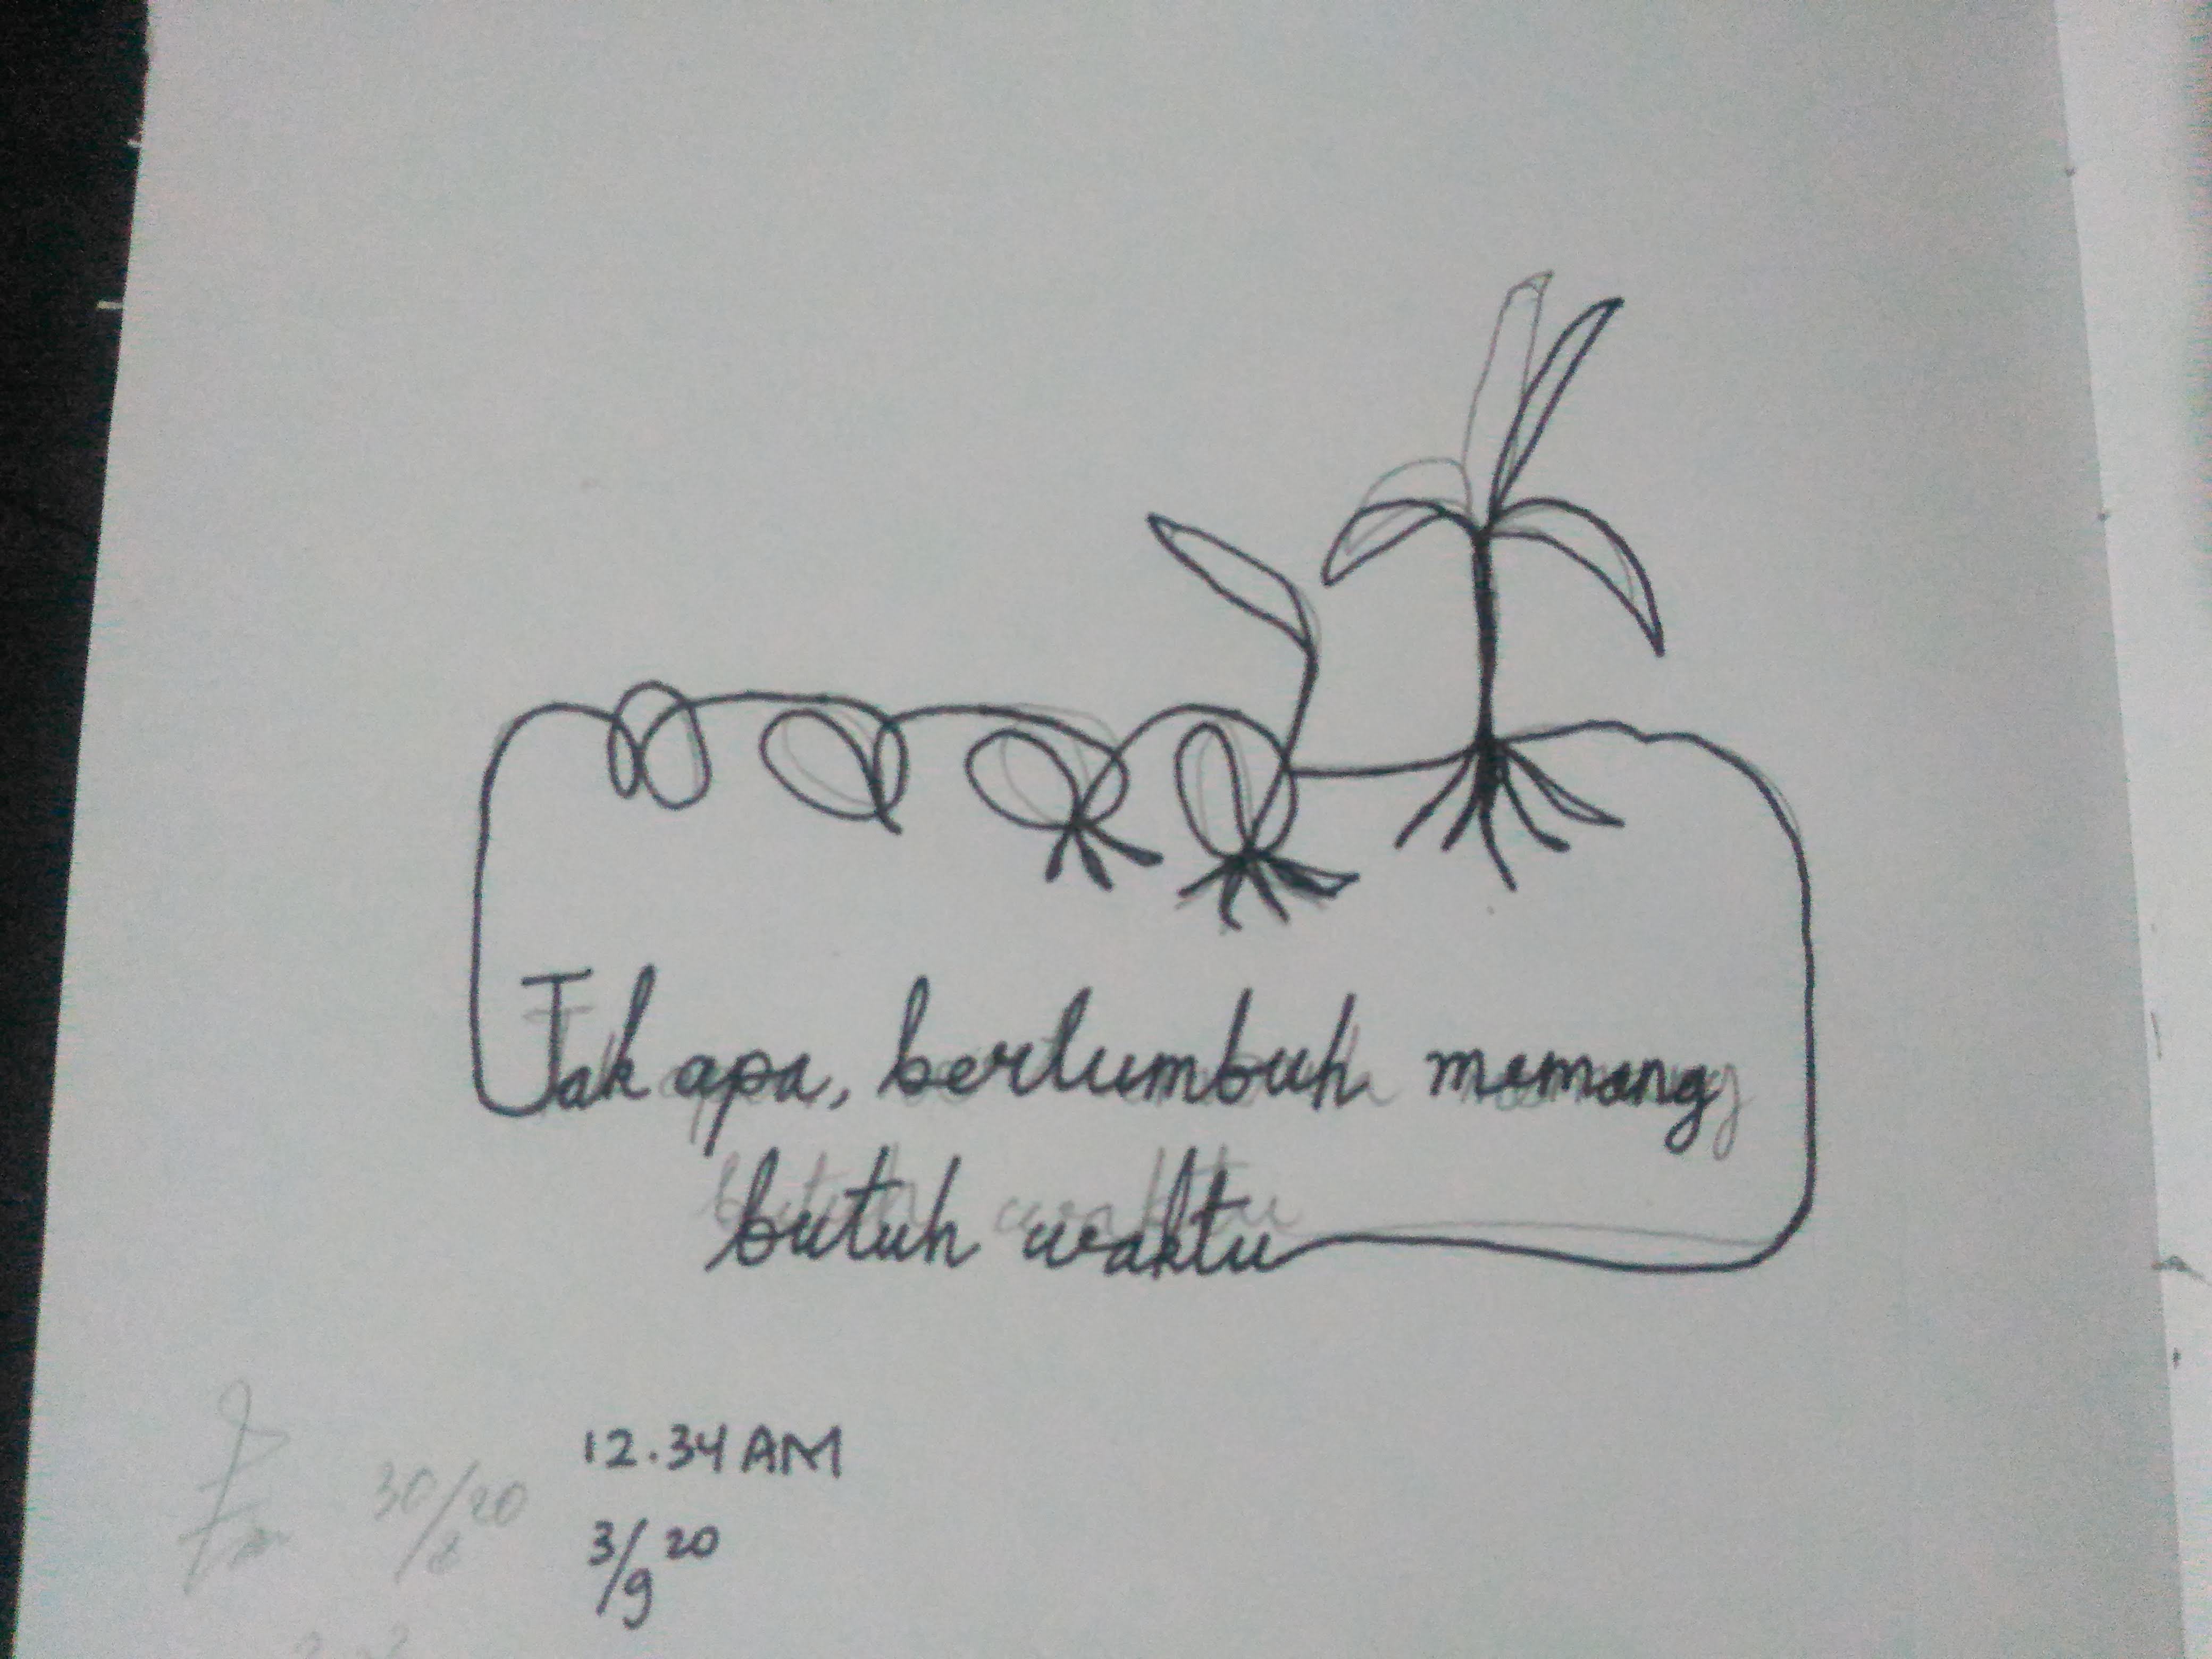 Tak apa, bertumbuh memang
butuh waktu
12.34 AM
3/9 20
30/8 20